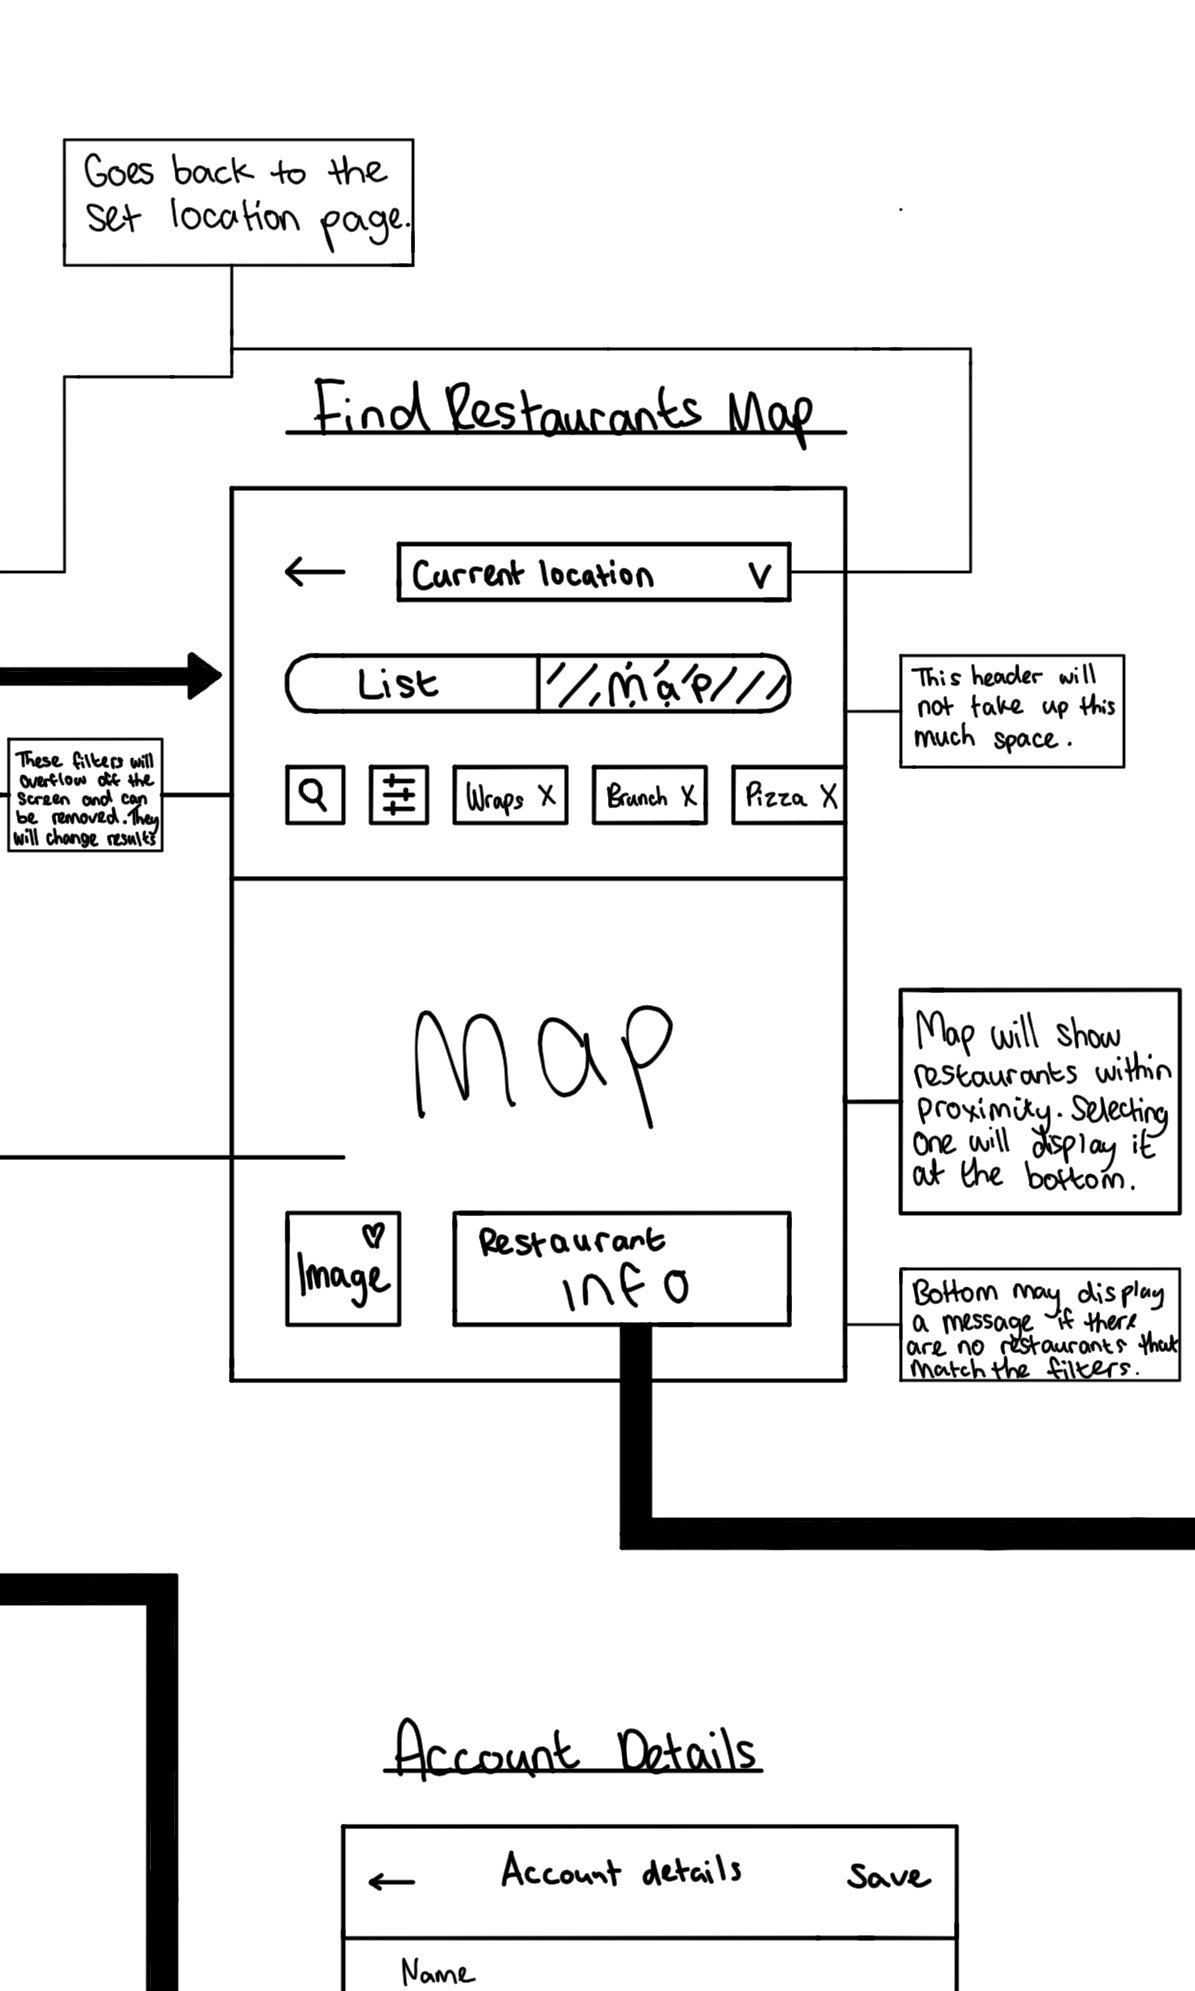 Goes back to the
set location page.
Find Restaurants Map
Current location V
List Map
This header will
not take up this
much space.
These filters will
overflow off the
screen and can
be removed. They
will change results
Wraps X Brunch X Pizza X
Map
Map will show
restaurants within
proximity. Selecting
one will display it
at the bottom.
Image
Restaurant
info
Bottom may display
a message if there
are no restaurants that
match the filters.
Account Details
Account details Save
Name